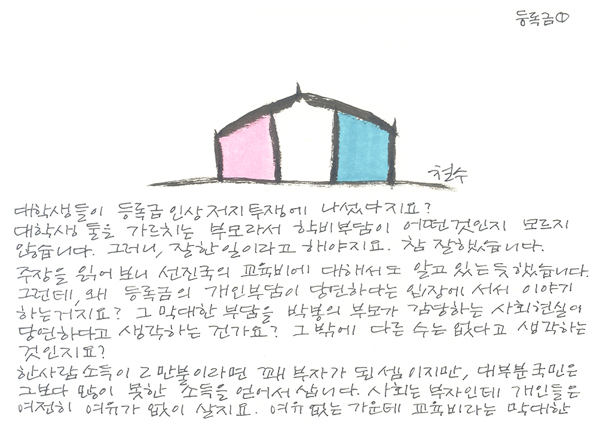 등록금①
철수
대학생들이 등록금 인상 저지 투쟁에 나섰다지요?
대학생 둘을 가르치는 부모라서 학비부담이 어떤것인지 모르지
않습니다. 그러나, 잘한 일이라고 해야지요. 참 잘했습니다.
주장을 읽어보니 선진국의 교육비에 대해서도 알고있는듯했습니다.
그런데, 왜 등록금의 개인부담이 당연하다는 입장에 서서 이야기
하는거지요? 그 막대한 부담을 박봉의 부모가 감당하는 사회현실이
당연하다고 생각하는 건가요? 그밖에 다른 수는 없다고 생각하는
것인지요?
한사람 소득이 2만불이라면 꽤 부자가 된셈이지만, 대부분국민은
그보다 많이 못한 소득을 얻어서 삽니다. 사회는 부자인데 개인들은
여전히 여유가 없이 살지요. 여유 없는 가운데 교육비라는 막대한